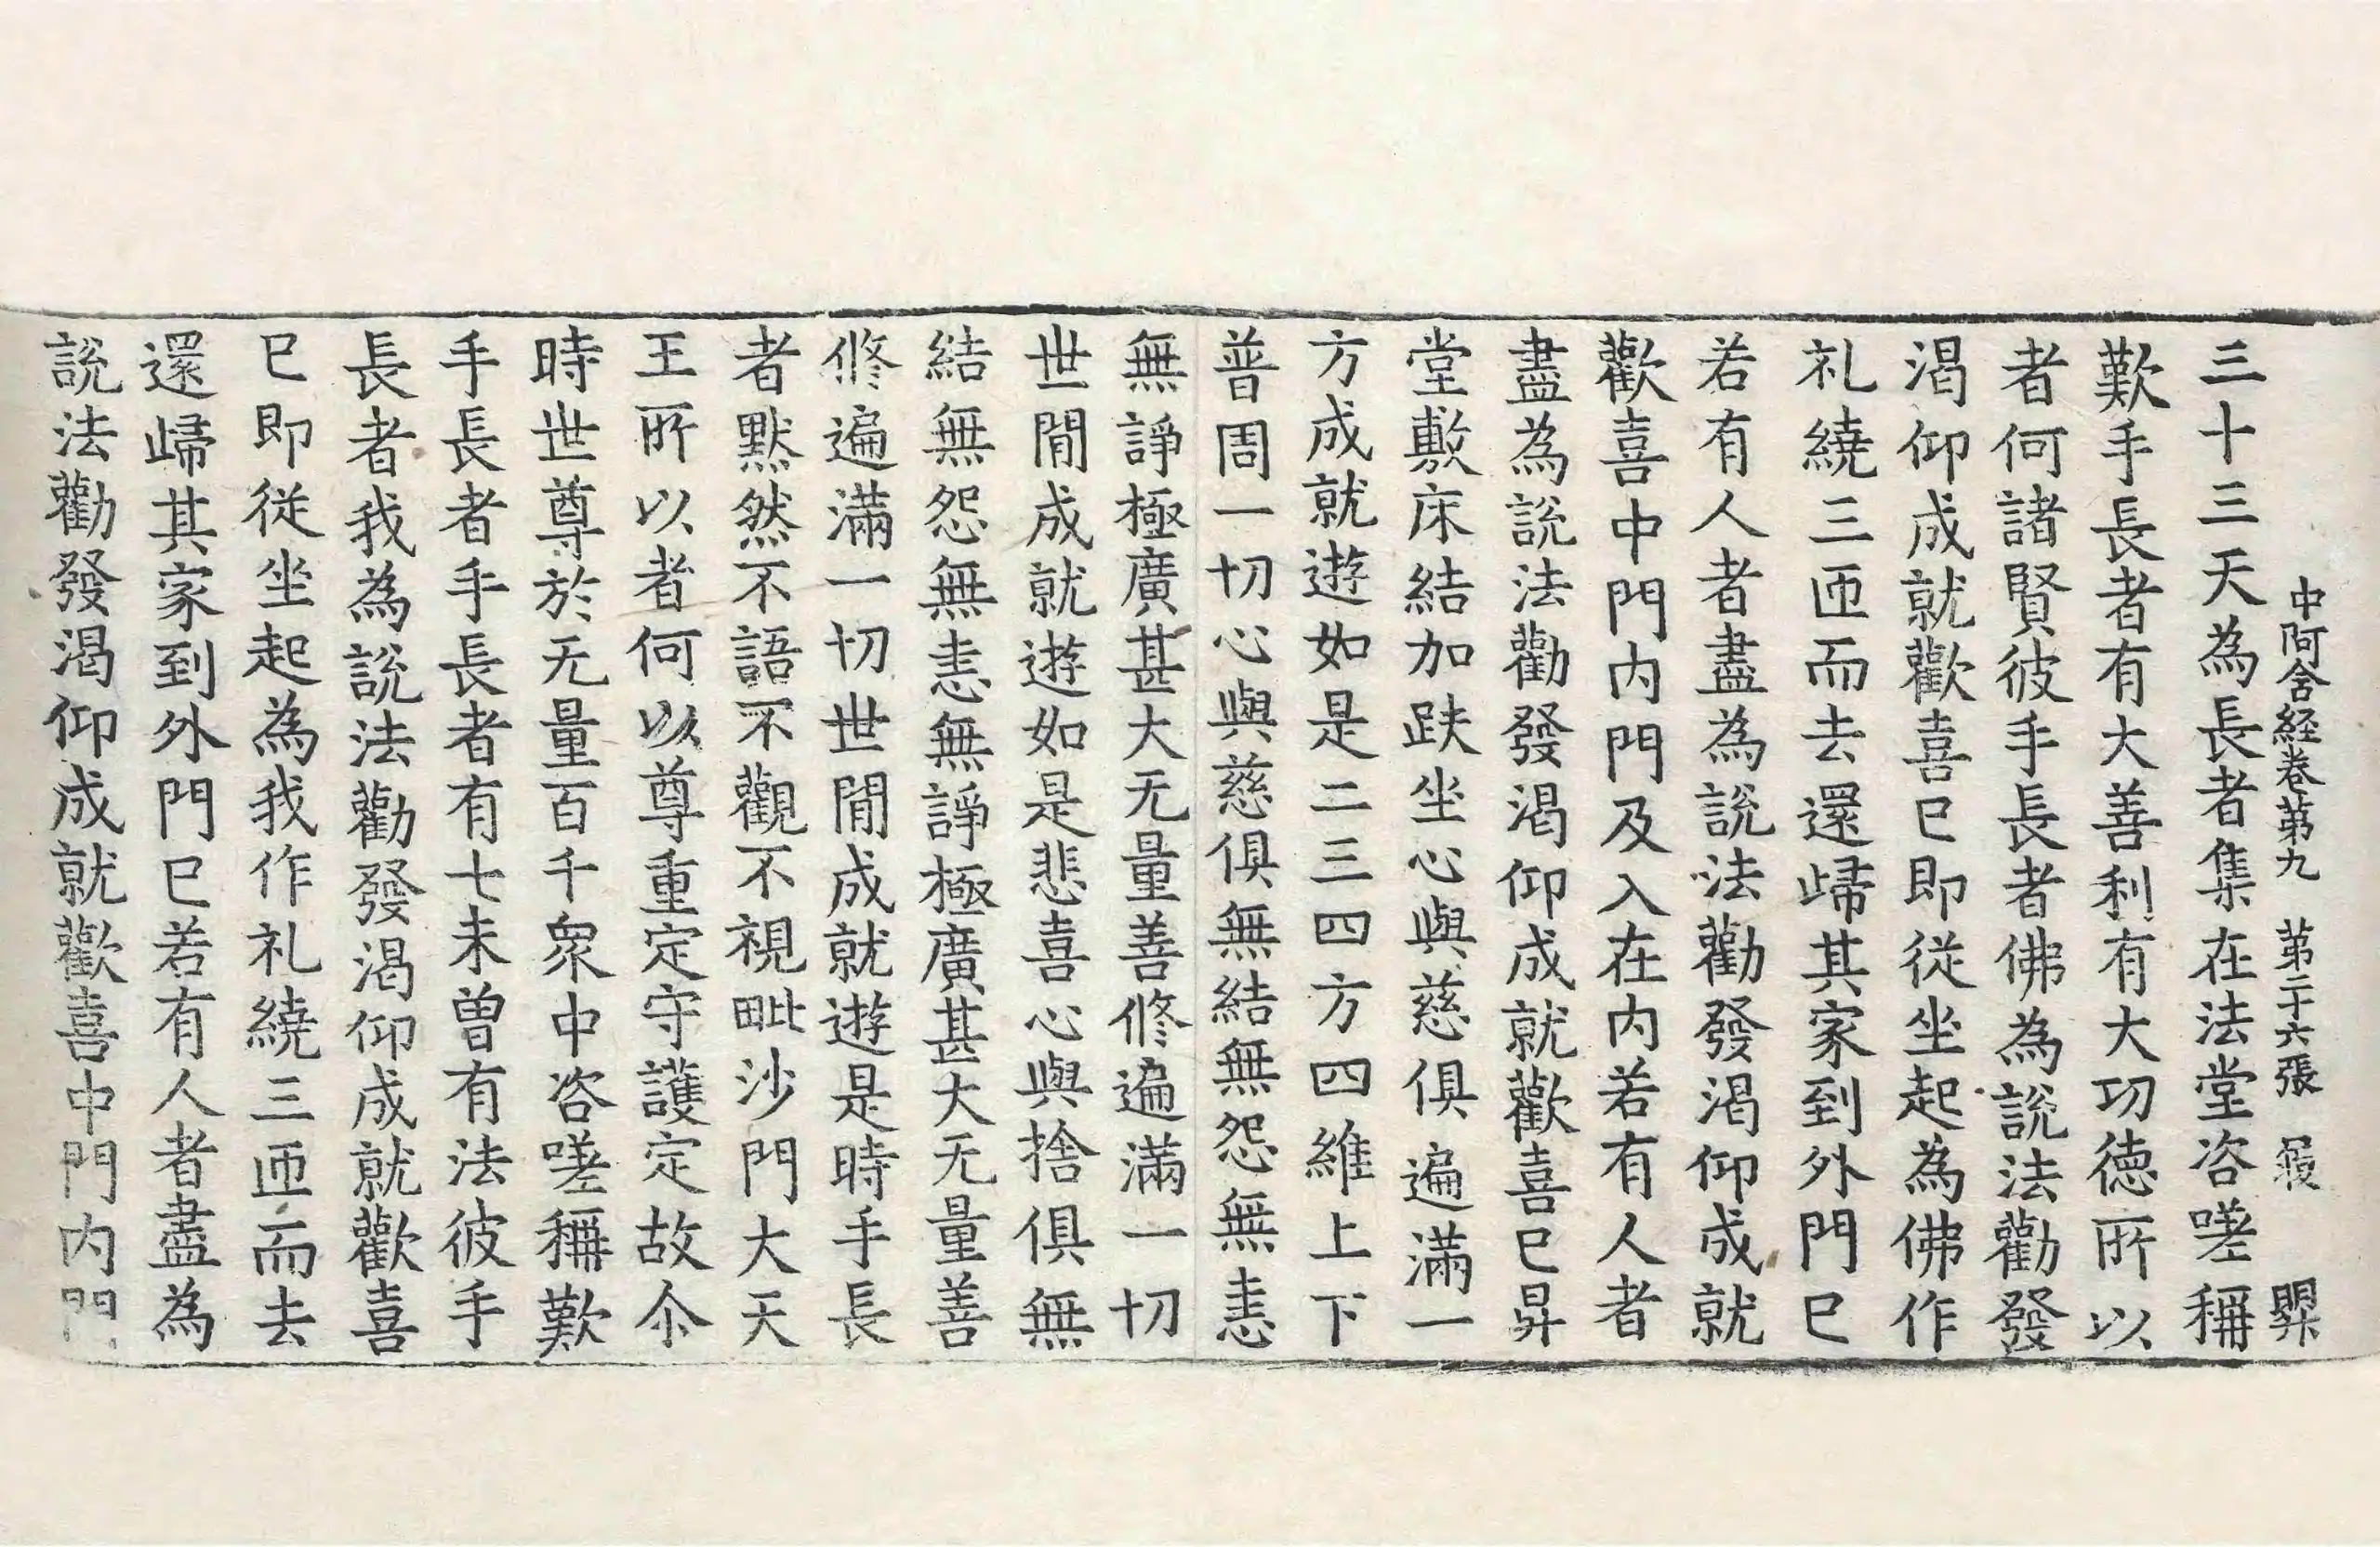 中阿含経卷苐九　苐二十六張　履　㬪
三十三天為長者集在法堂咨嗟稱
歎手長者有大善利有大功徳所以
者何諸賢彼手長者佛為說法勸發
渇仰成就歡喜已即従坐起為佛作
礼繞三匝而去還歸其家到外門已
若有人者盡為說法勸發渇仰成就
歡喜中門内門及入在内若有人者
盡為說法勸發渇仰成就歡喜已昇
堂敷床結加趺坐心與慈俱遍滿一
方成就遊如是二三四方四維上下
普周一切心與慈俱無結無怨無恚
無諍極廣甚大无量善修遍滿一切
世間成就遊如是悲喜心與捨俱無
結無怨無恚無諍極廣甚大无量善
修遍滿一切世間成就遊是時手長
者默然不語不觀不視毗沙門大天
王所以者何以尊重定守護定故尒
時世尊於无量百千衆中咨嗟稱歎
手長者手長者有七未曽有法彼手
長者我為說法勸發渇仰成就歡喜
已即従坐起為我作礼繞三匝而去
還歸其家到外門已若有人者盡為
說法勸發渇仰成就歡喜中門内門